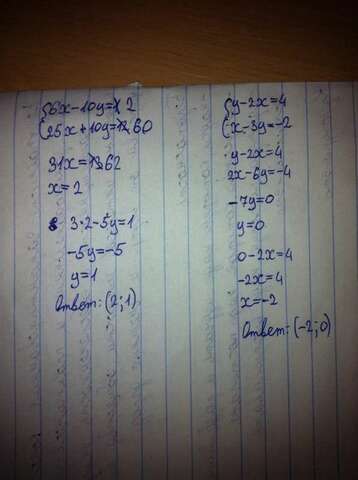 {6x-10y=2
{25x+10y=60
31x=62
x=2
3·2-5y=1
-5y=-5
y=1
Ответ: (2;1)
{y-2x=4
{x-3y=-2
y-2x=4
2x-6y=-4
-7y=0
y=0
0-2x=4
-2x=4
x=-2
Ответ: (-2;0)